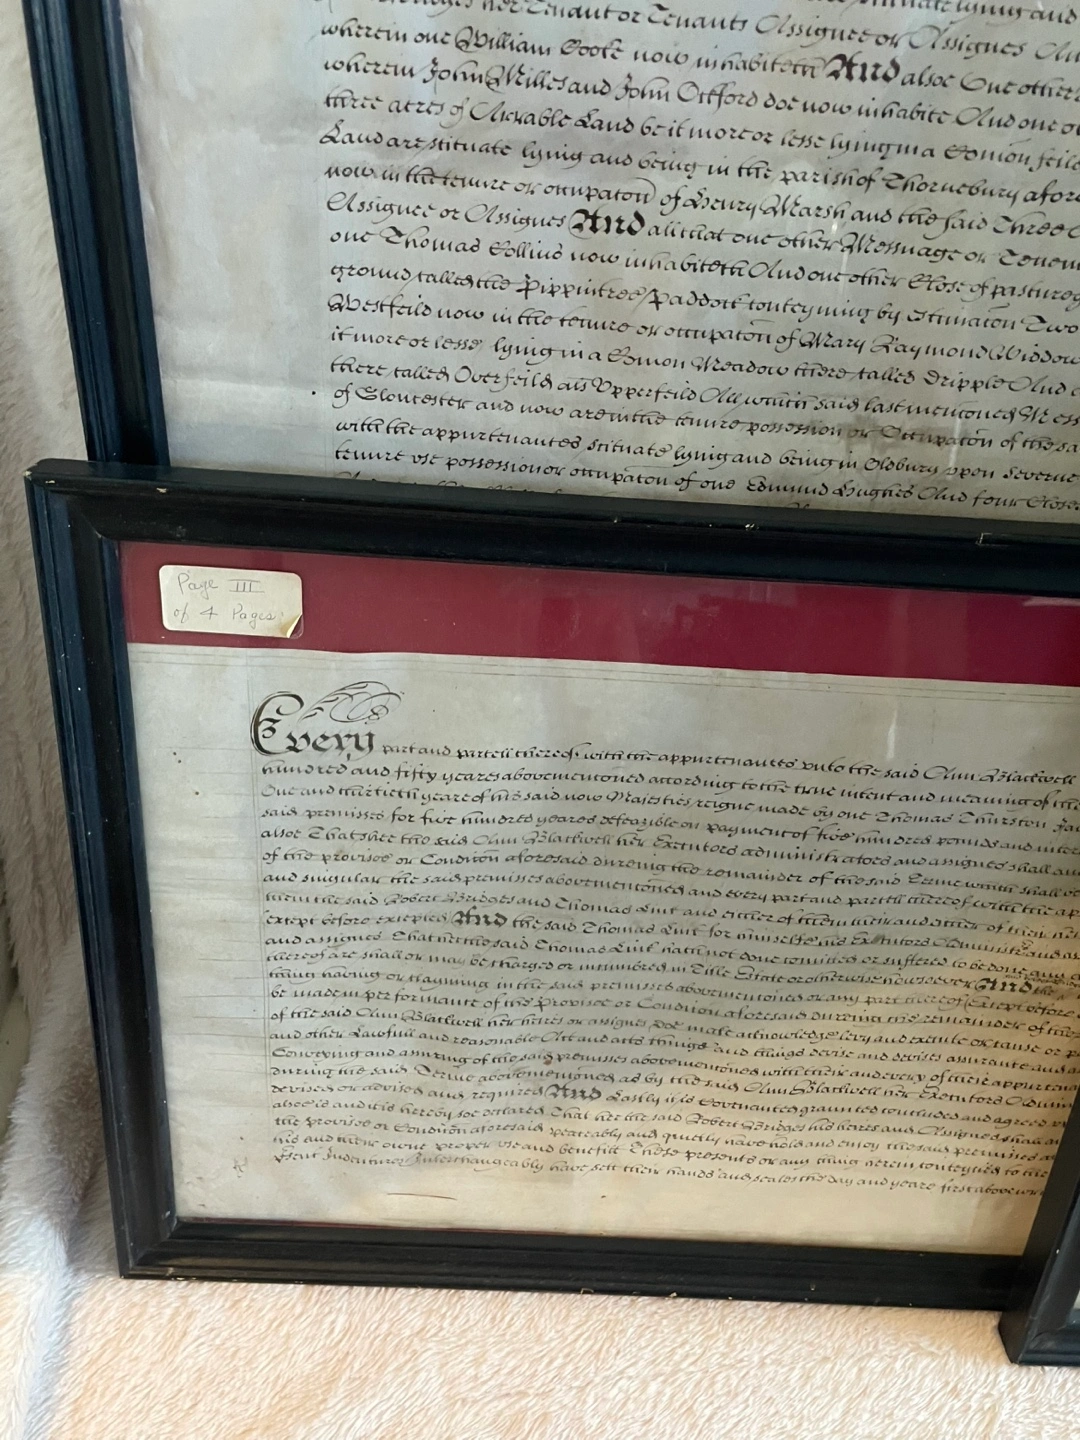 her Tenant or Tenants Assignee or Assignes
wherein one William Cooke now inhabiteth And alsoe One other
wherein John Milles and John Ottford doe now inhabite And one
three acres of Arrable Land be it more or lesse lying in a Comon feild
Land are scituate lying and being in the parish of Thornebury afore
now in the tenure or occupacon of Henry Marsh and the said Three
Assignee or Assignes And all that one other Messuage or Tenem
one Thomas Collins now inhabiteth And one other Close of pasture
ground called the Pippintree Paddock conteyning by estimacon Two
Westfeild now in the tenure or occupacon of Mary Raymond Widdow
it more or lesse lying in a Comon Meadow there called Dripple And
there called Overfeild als Upperfeild All which said last mencioned Mess
of Gloucester and now are in the tenure possession or Occupacon of the sa
with the appurtenances scituate lying and being in Oldbury upon Severne
tenure use possession or occupacon of one Edmund Hughes And four Closes
Page III
of 4 Pages
Every part and parcell thereof with the appurtenances unto the said Ann Blackwell
hundred and fifty yeares abovemencioned according to the true intent and meaning of the
One and thirtieth yeare of his said now Majesties reigne made by one Thomas Thurston
said premisses for five hundred yeares defeazible on payment of five hundred pounds and
alsoe That shee the said Ann Blackwell her Executors administrators and assignes shall and
of the provisoe or Condicon aforesaid dureing the remainder of the said Terme which shall
and singular the said premisses abovemencioned and every part and parcell thereof with the
them the said Robert Bridges and Thomas Link and either of them their and either of their
except before excepted And the said Thomas Link for himselfe his Executors Administrat
and assignes That hee the said Thomas Link hath not done comitted or suffered to be done any
thereof are shall or may be charged or incumbred in Title Estate or otherwise howsoever And the
thing having or clayming in the said premisses abovemencioned or any part thereof Except before
be made in performance of the Provisoe or Condicon aforesaid dureing the remainder of the
of the said Ann Blackwell her heires or assignes doe make acknowledge levy and execute or cause or
and other Lawfull and reasonable Act and acts thing and things devise and devises assurance and
Conveying and assuring of the said premisses abovemencioned with their and every of their appurtena
dureing the said Terme abovemencioned as by the said Ann Blackwell her Executors
devised or advised and required And Lastly it is Covenanted graunted concluded and agreed
alsoe is and it is hereby soe declared That hee the said Robert Bridges his heires and Assignes shall
the Provisoe or Condicon aforesaid peaceably and quietly have hold and enjoy the said premisses
his and their owne proper use and benefitt These presents or any thing herein conteyned to the
psent Indentures Interchangeably have sett their hands and seales the day and yeare first above